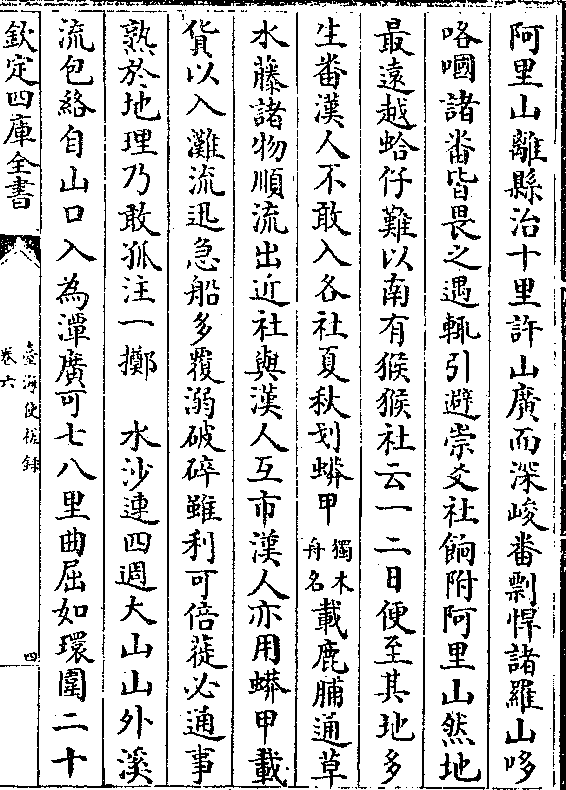 阿里山離縣治十里許山廣而深峻番剽悍諸羅山哆
咯嘓諸番皆畏之遇輒引避崇爻社餉附阿里山然地
最遠越蛤仔難以南有猴猴社云一二日便至其地多
生番漢人不敢入各社夏秋划蟒甲獨木舟名載鹿脯通草
水藤諸物順流出近社與漢人互市漢人亦用蟒甲載
貨以入灘流迅急船多覆溺破碎雖利可倍蓰必通事
熟於地理乃敢孤注一擲　水沙連四週大山山外溪
流包絡自山口入為潭廣可七八里曲屈如環圍二十
欽定四庫全書
臺海使槎録
卷六
四